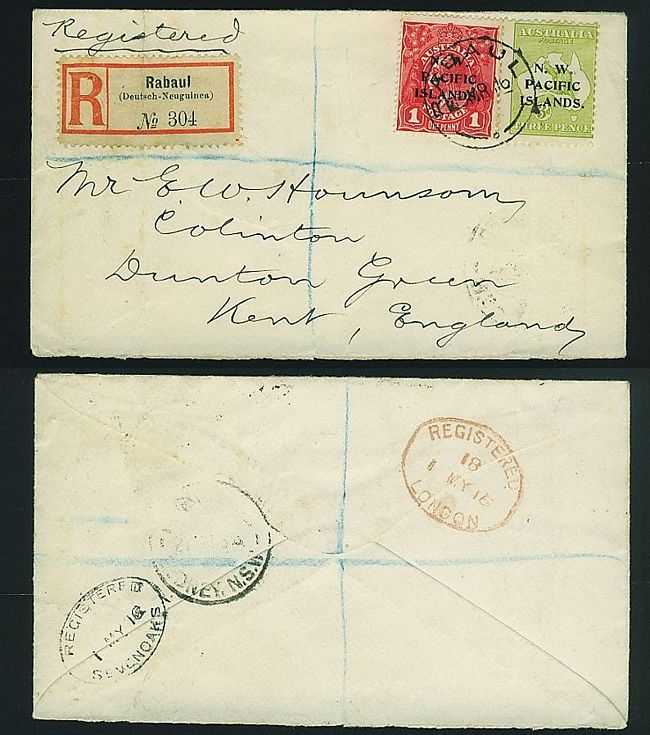 Registered
R
Rabaul
(Deutsch-Neuguinea)
№ 304
PACIFIC
ISLANDS.
1 1
ONE PENNY
RABAUL
16
AUSTRALIA
POSTAGE
N. W.
PACIFIC
ISLANDS.
THREE PENCE
Mr E. W. Hounsom,
Colinton
Dunton Green
Kent, England
REGISTERED
18
1 MY 16
LONDON
SYDNEY. N.S.W
REGISTERED
1 MY 16
SEVENOAKS